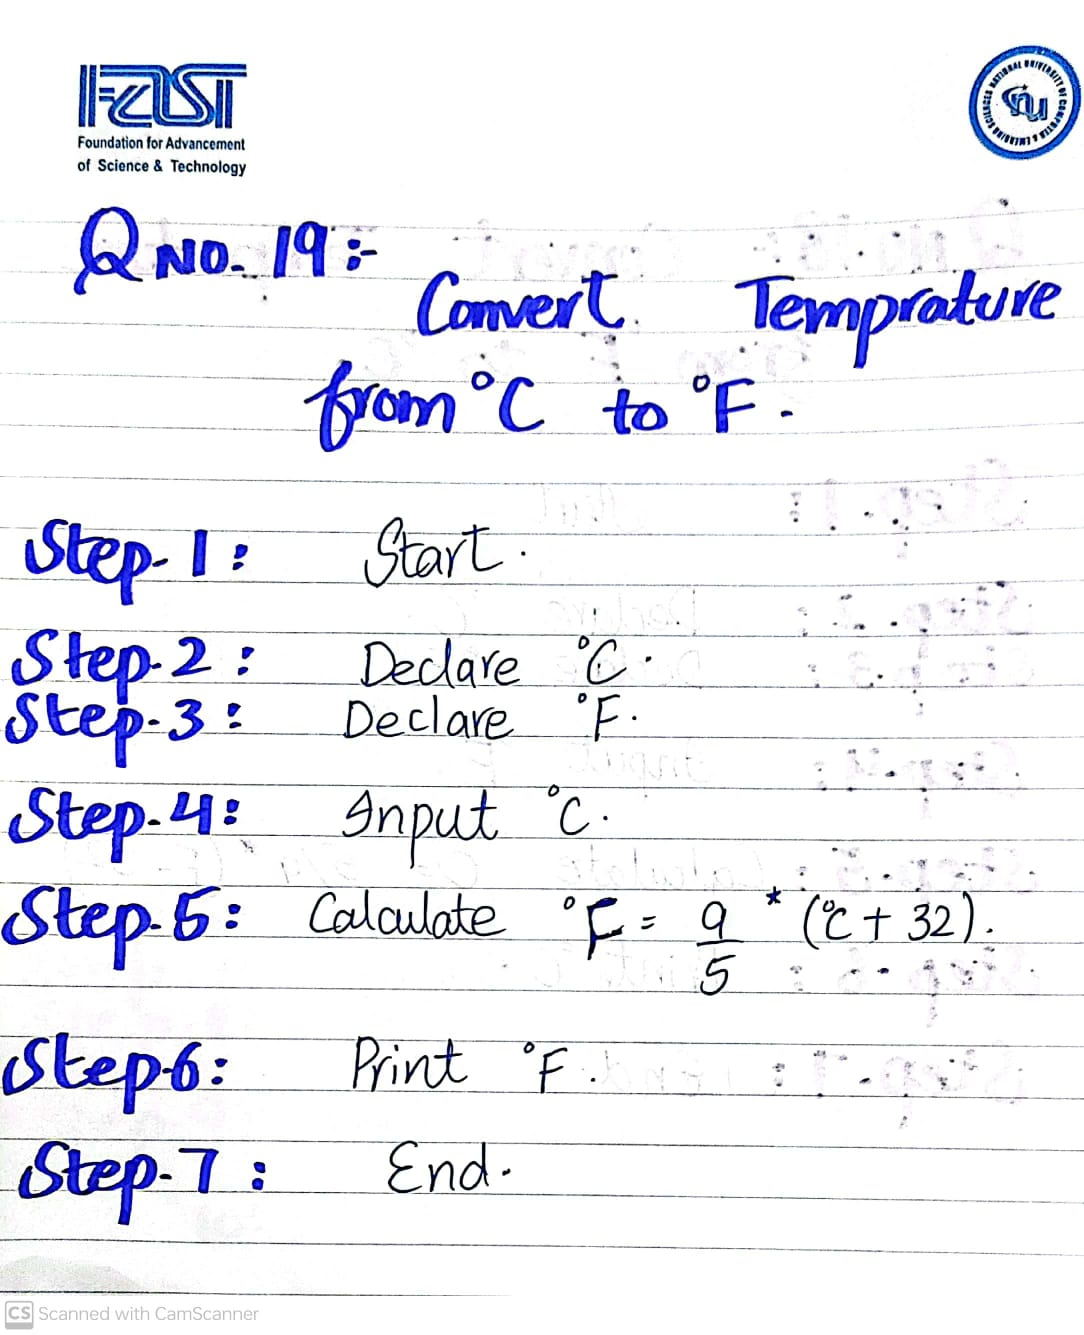 FAST
Foundation for Advancement
of Science & Technology
NATIONAL UNIVERSITY OF COMPUTER & EMERGING SCIENCES
nu
Q NO. 19 :-
Convert Temprature
from °C to °F.
Step-1: Start.
Step-2: Declare °C.
Step-3: Declare °F.
Step-4: Input °C.
Step-5: Calculate °F = 9/5 * (°C + 32).
Step 6: Print °F.
Step-7: End.
CS Scanned with CamScanner